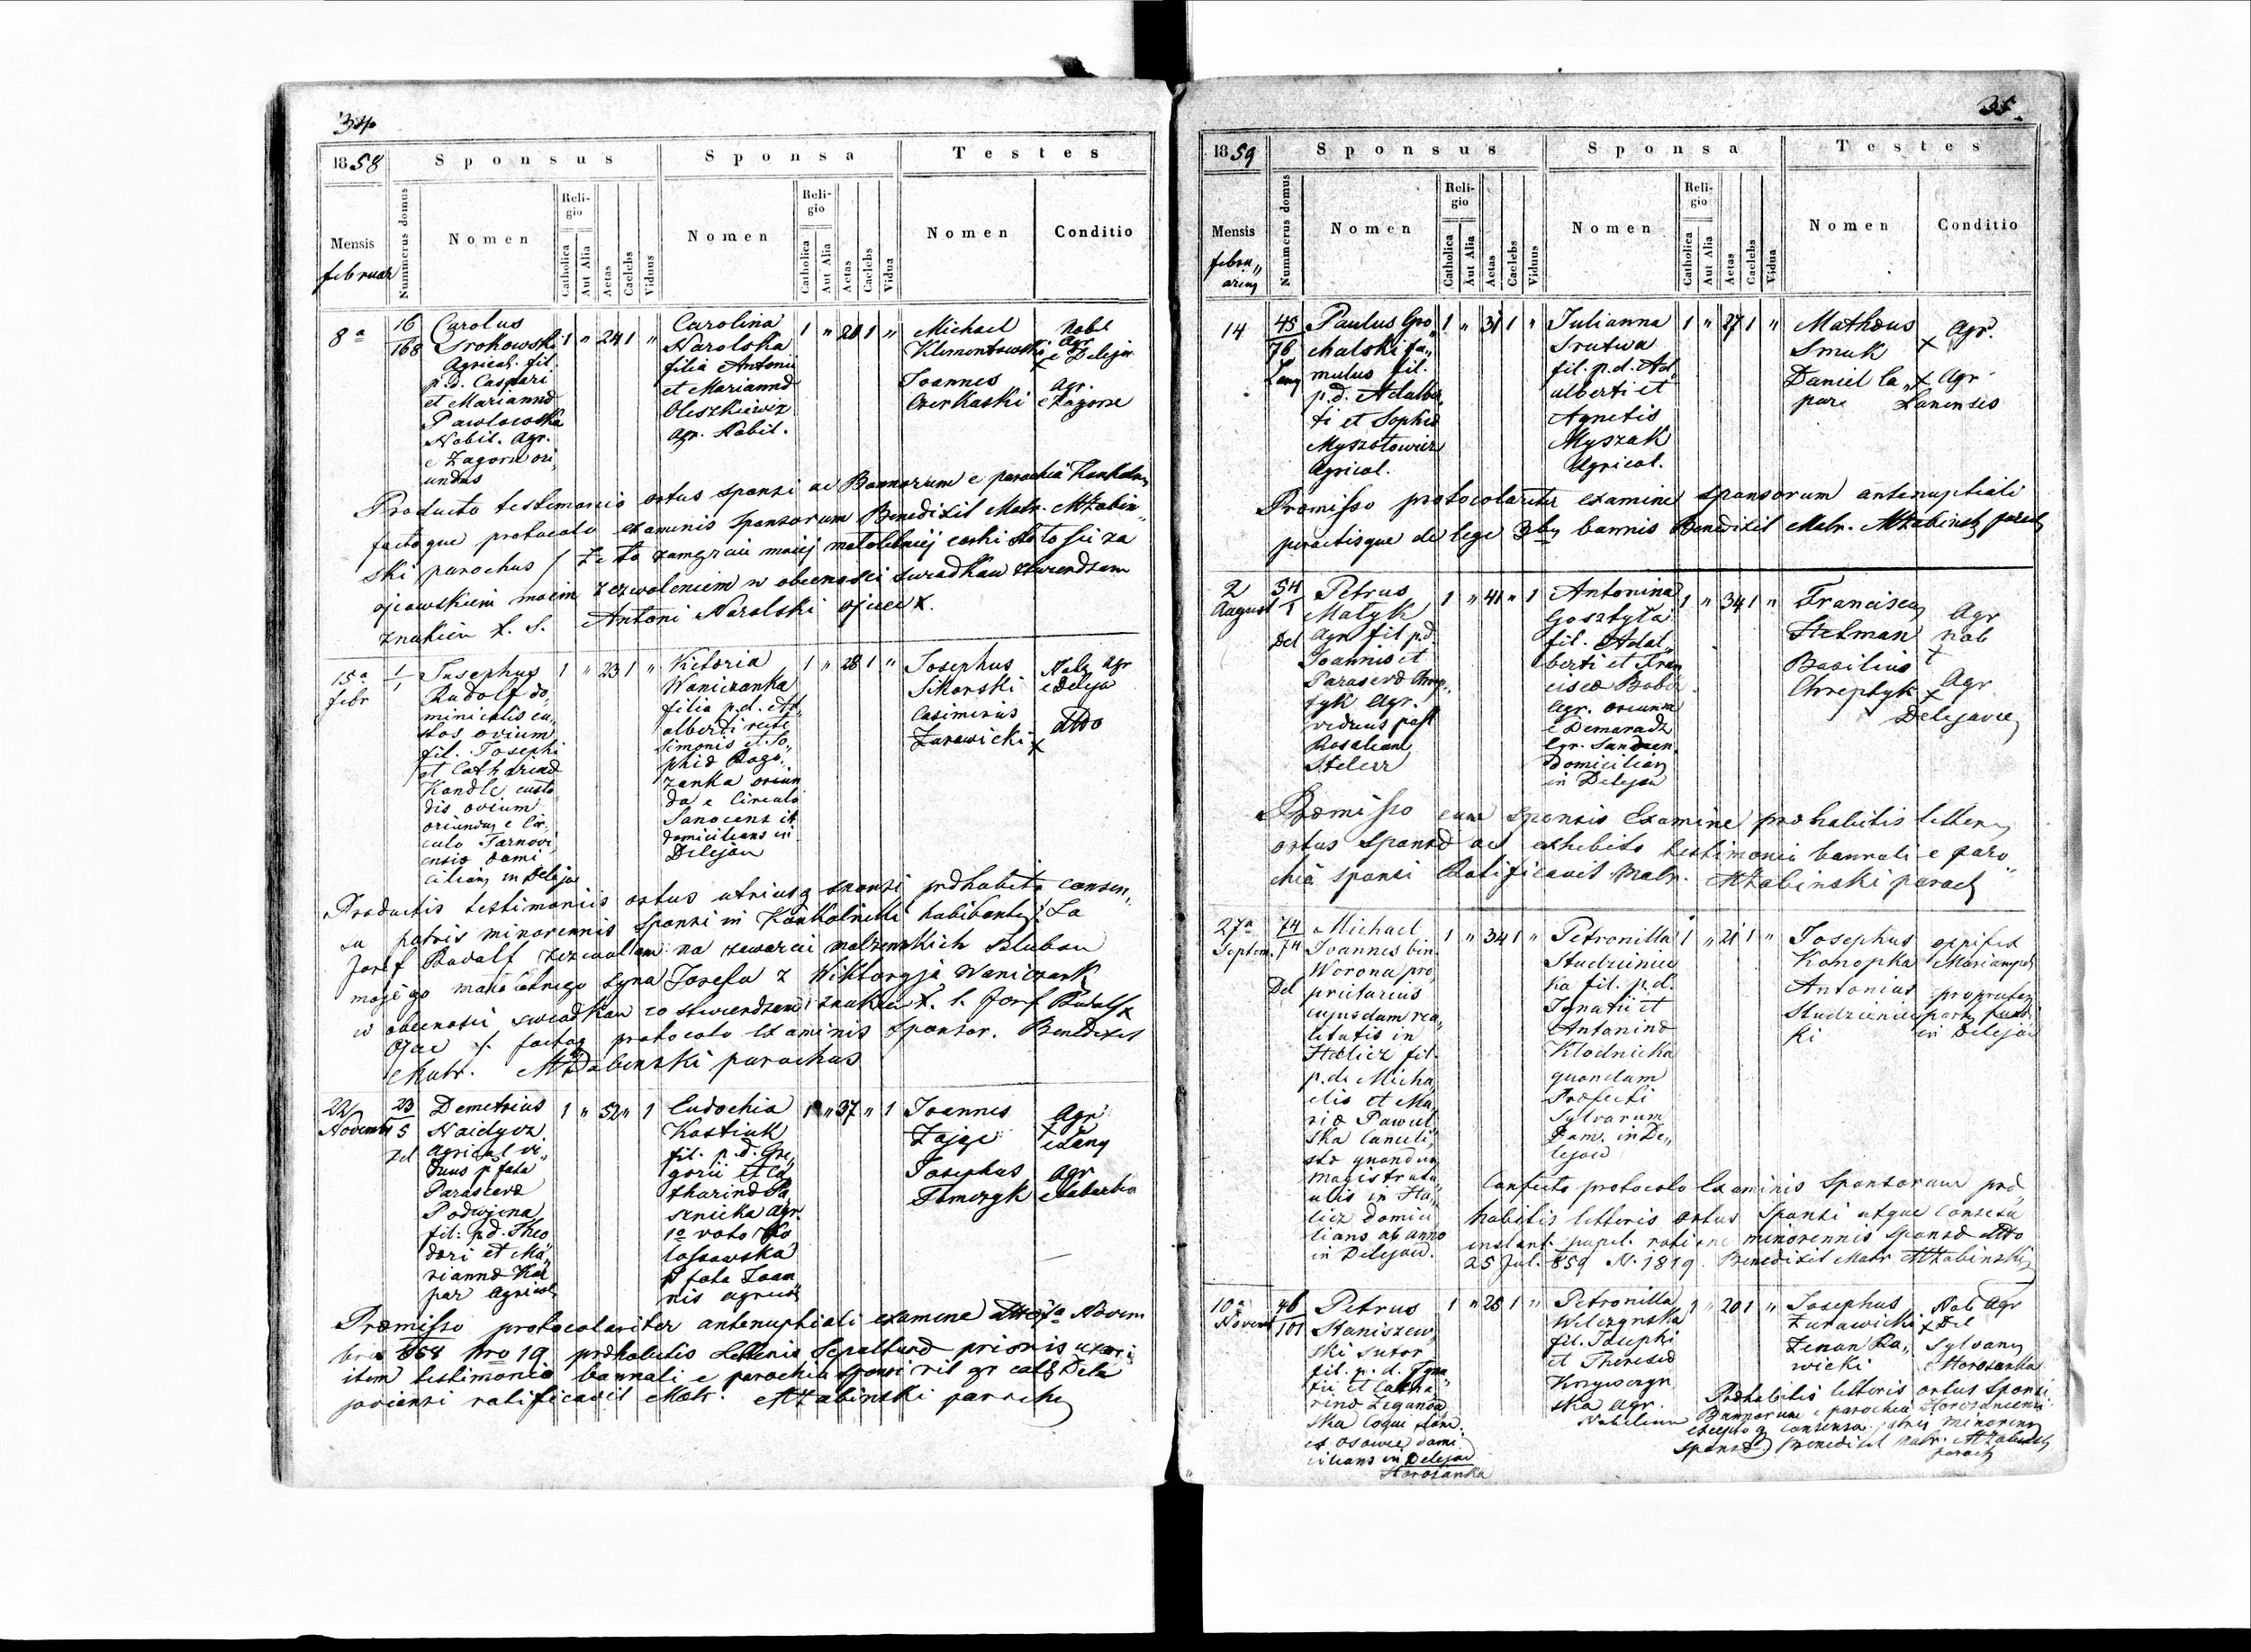 34
1858
Sponsus
Sponsa
Testes
Mensis
februar
Nummerus domus
Nomen
Religio
Catholica
Aut Alia
Aetas
Caelebs
Viduus
Nomen
Religio
Catholica
Aut Alia
Aetas
Caelebs
Vidua
Nomen
Conditio
8a
16
168
Carolus
Agricol. fil.
p.d. Caspari
et Mariannæ
Pawłowska
Nobil. Agr.
e Zagorze ori„
undus
1 „ 24 1 „
Carolina
Narolska
filia Antonii
et Mariannæ
Oleszkiewicz
agr. Nobil.
1 „ 20 1 „
Michael
Joannes
Czerkaski
Nobil
Agr
x e Delejow
Agr.
e Zagorze
Producto testimonio ortus sponsi ac Bannorum e parochia
factoque protocolo examinis sponsorum Benedixit Matr.
ski parochus / Że to zamęzcie moiej małoletniej corki stało się za
ojcowskiem moiem zezwoleniem w obecności swiadkow stwierdzam
znakiem x. S. Antoni Narolski ojciec x.
15a
febr
1
1
Josephus
Rudolf do„
minicalis cu„
stos ovium
fil. Josephi
et Catharinæ
Kandle custo
dis ovium
oriundus e Cir„
culo Tarnovi
ensis domi
cilians in Delejow
1 „ 23 1 „
Victoria
Waniczanka
filia p.d. Ad„
alberti recte
Simonis et So„
phiæ Rogo„
zanka oriun
da e Circulo
Sanocens it
domicilians in
Delejow
1 „ 28 1 „
Josephus
Sikorski
Casimirus
Żurawicki x
Nobi Agr
e Delejow
dtto
Productis testimoniis ortus utriusq sponsi præhabito consen„
su patris minorennis sponsi in habitantis /: Ja
Jozef Rudolf zezwallam na zawarcie małzenskich slubow
mojego małoletniego syna Josefa z Wiktoryją Waniczank
w obecności swiadkow co stwierdzam znakiem x. S. Jozef Rudolf x
Ojciec :/ factoq protocolo examinis sponsor. Benedixit
Matr. parochus
22
Novemb
23
15
Del
Demetrius
Naidycz
agricol vi„
duus p fata
Parascevæ
Podwyina
fil: p.d. Theo
dori et Ma„
riannæ Ka
par agricol
1 „ 52 „ 1
Eudochia
Kostiuk
fil. p.d. Gre„
gorii et Ca
tharinæ Pa„
sznicka Agr.
1o voto Ko
lossowska
p fata Joan„
nis agricol
1 „ 37 „ 1
Joannes
Zając
Josephus
Tomczyk
Agr
x
e Łany
Agr
Præmisso protocolariter antenuptiali examine dtto Novem
bris 858 Nro 19 præhabitis Litteris Sepulturæ prioris uxoris
item testimonio bannali e parochia sponsi rit gr cath Dele
joviensi ratificavit Matr. parochus
35.
1859
Sponsus
Sponsa
Testes
Mensis
febru„
arius
Nummerus domus
Nomen
Religio
Catholica
Aut Alia
Aetas
Caelebs
Viduus
Nomen
Religio
Catholica
Aut Alia
Aetas
Caelebs
Vidua
Nomen
Conditio
14
45
76
Łany
Paulus Gro„
chalski fa„
mulus fil.
p.d. Adalber„
ti et Sophiæ
Myszołowicz
Agricol.
1 „ 31 1 „
Julianna
Srutwa
fil. p.d. Ad„
alberti et
Agnetis
Myszak
Agricol.
1 „ 27 1 „
Mathæus
Smuk
Daniel Ca„
par
Agr.
x
x Agr
Lanenses
Præmisso protocolariter examine sponsorum antenuptiali
peractisque de lege 3bus bannis Benedixit Matr. paroch
2
August
54
1
Del
Petrus
Matyk
Agr fil p.d.
Joannis et
Parascevæ
Agr.
viduus post
Rosaliam
Stelcer
1 „ 41 „ 1
Antonina
Gosztyła
fil. Adal„
berti et Fran
ciscæ Boba
Agr. oriunda
e Domaradz
Cir. Sandecen
domicilians
in Delejow
1 „ 34 1 „
Franciscus
Stelman
Basilius
Chreptyk
Agr
nob
x
Agr
x
Delejoviens
Præmisso cum sponsis Examine præhabitis litteris
ortus sponsæ ac exhibito testimonio bannali e paro„
chia sponsi Ratificavit Matr. paroch
27a
Septem
74
74
Del
Michael
Joannes bin.
Worona pro„
prietarius
cujusdam rea„
litatis in
Halicz fil.
p.d. Micha„
elis et Ma„
riæ Pawul„
ska Cancelli„
stæ quondam
magistratu„
alis in Ha„
licz domici
lians ab anno
in Delejow.
1 „ 34 1 „
Petronilla
Studzinic
ka fil. p.d.
Ignatii et
Antoninæ
Kłodnicka
quondam
Præfecti
Sylvarum
Dom. in De„
lejow
1 „ 21 1 „
Josephus
Konopka
Antonius
Studziniec
ki
oppifex
Mariampol
part. fundi
in Delejow
Confecto protocolo Examinis Sponsorum præ„
habitis litteris ortus Sponsi atque consensu
instant. pupil. ratione minorennis Sponsæ dtto
25 Jul. 859 N. 1819. Benedixit Matr
10a
Novemb
46
101
Petrus
Staniszew„
ski sutor
fil. p.d. Igna„
tii et Catha„
rinæ
domi„
cilians in Delejow
Horozanka
1 „ 25 1 „
Petronilla
Wilczynska
fil. Josephi
et Theresiæ
ska agr.
Nobilium
1 „ 20 1 „
Josephus
Żurawicki
Zenon Ra„
wicki
Nobi Agr
x Del
Sylvanus
e Horozanka
Præhabitis litteris ortus Sponsi
Bannorum e parochia
exceptoq consensu patris minorenn
Sponsæ Benedixit Matr.
paroch